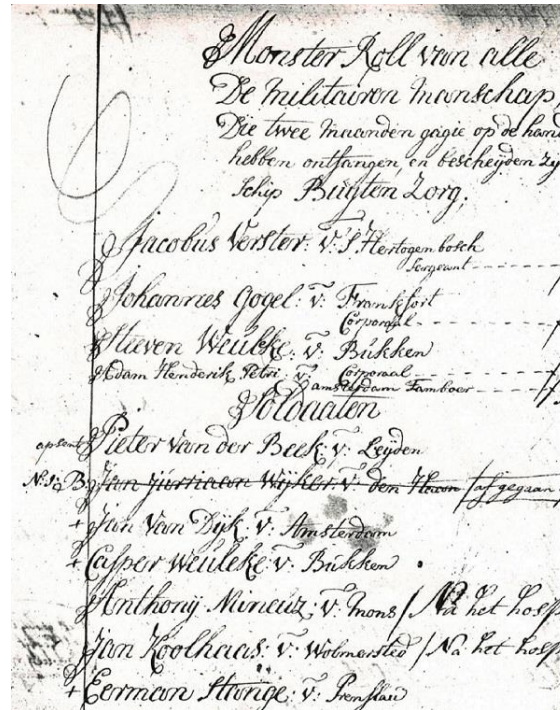 Monster Roll van alle
De militairen manschap
Die twee maanden gagie op de hand
hebben ontfangen, en bescheyden zy
Schip Buyten Zorg,
Jacobus Verster: v: S'Hertogenbosch
Sergeant
Johannes Gogel: v: Frankfort
Corporaal
Steeven Weuleke: v: Bukken
Corporaal
Adam Henderik Petri: v: amsterdam Tamboer
Soldaaten
apsent Pieter van der Beek: v: Leyden
Jan Jurriaan Wijker: v: den Haan / afgegaan
+ Jan Van Dijk: v: Amsterdam
+ Casper Weuleke: v: Bukken
Anthonij Mineuz: v: mons / Na het hosp
Jan Koolhaas: v: Wolmersted / Na het hosp
+ Eerman Stange: v: Prenslau